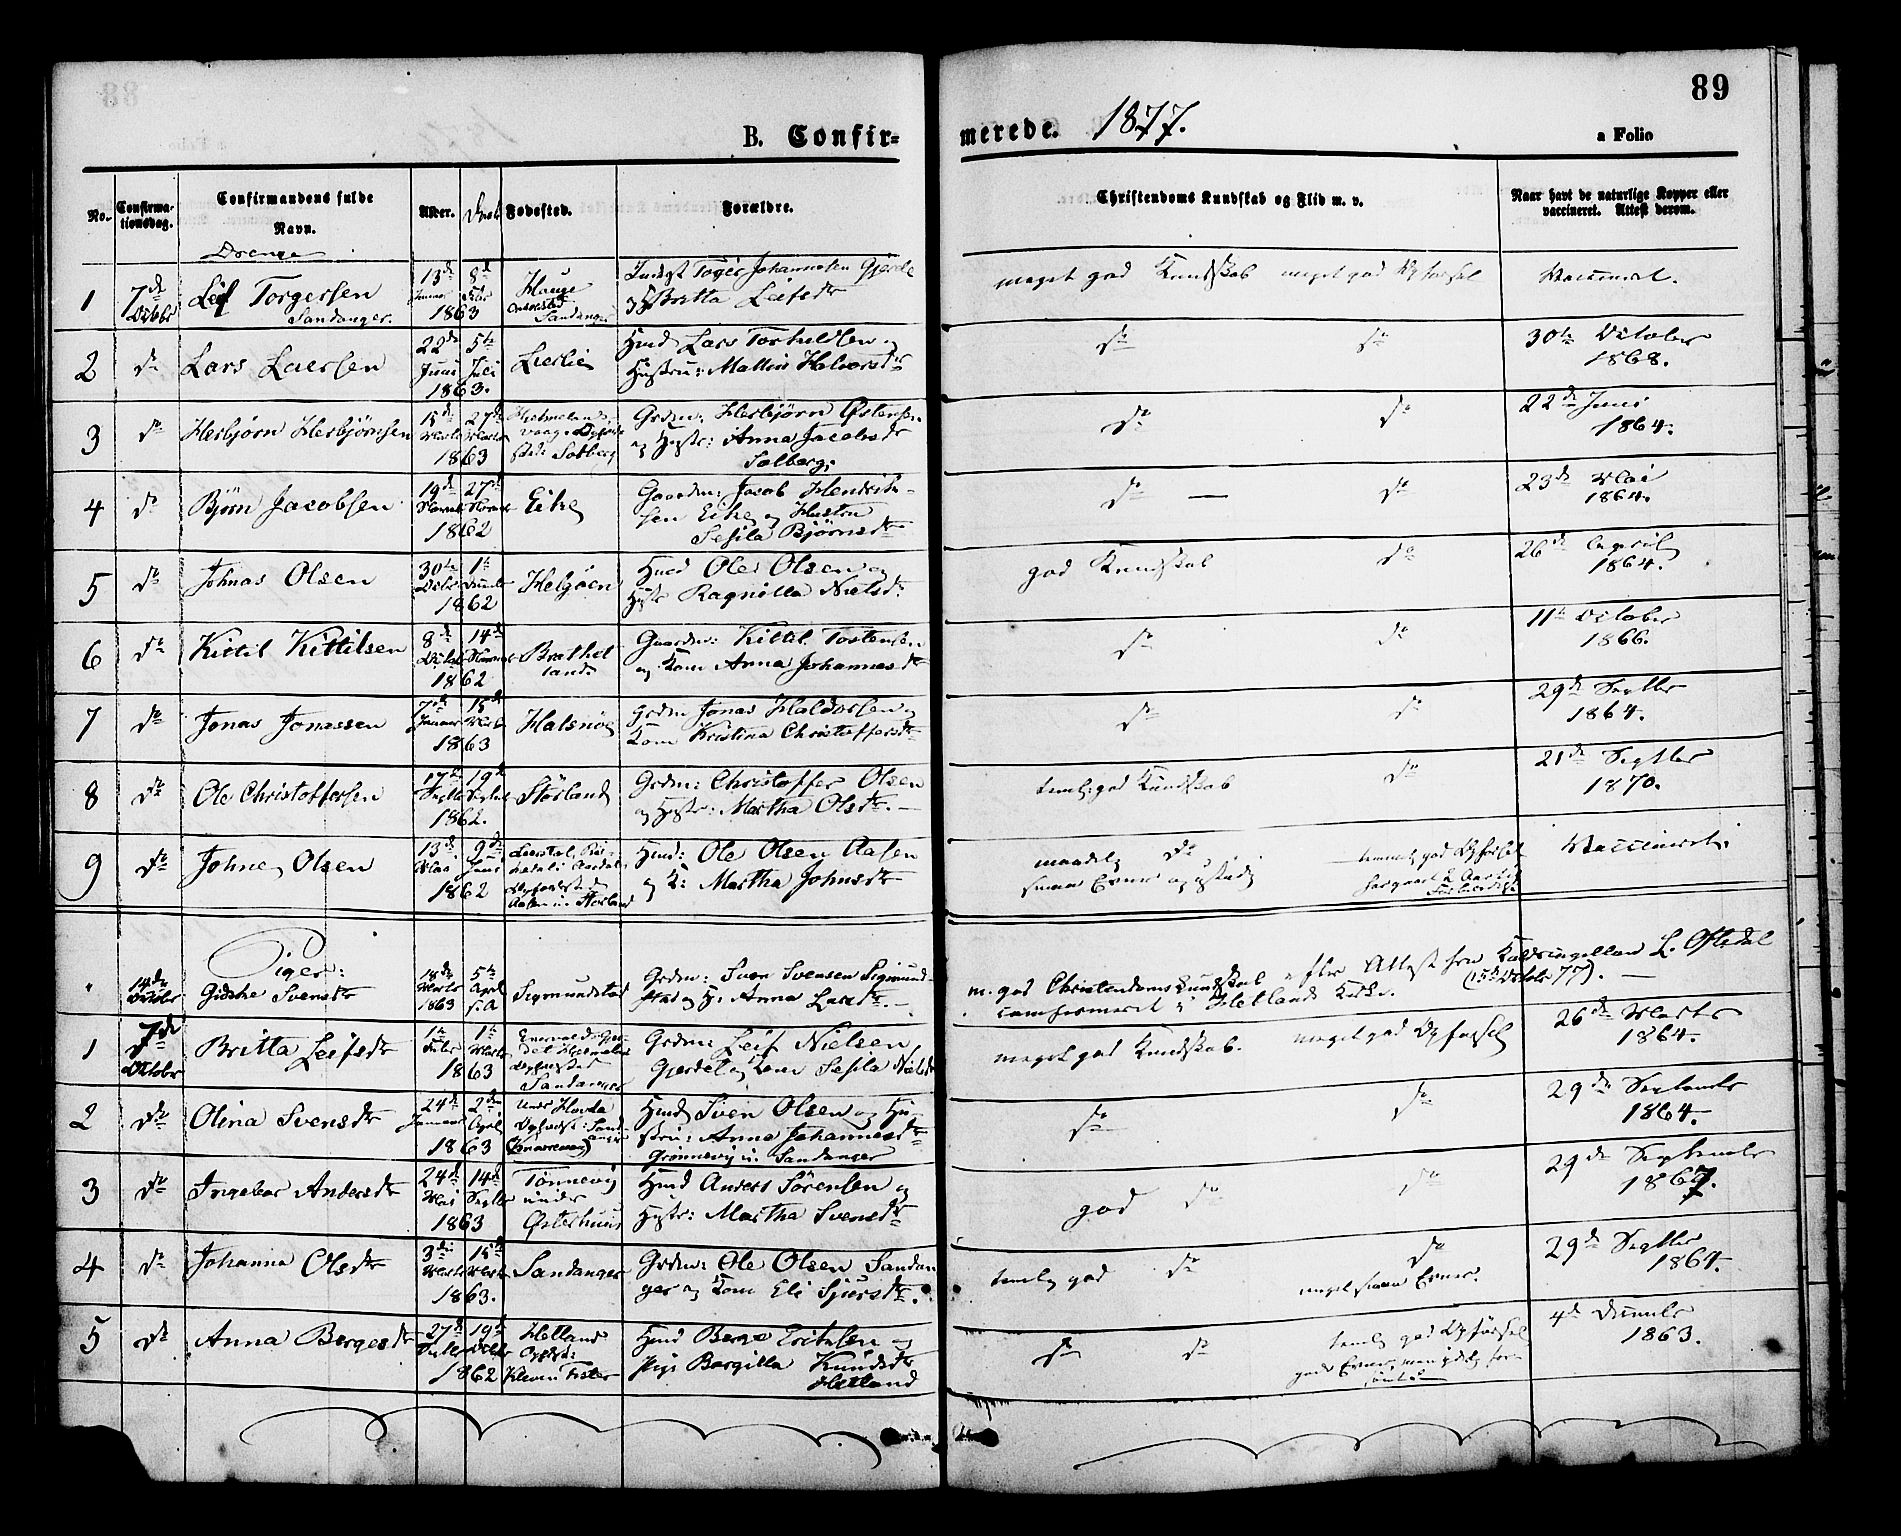 89
B. Confir-
merede. 1877.
a Folio
No.
Confirma-
tionsdag.
Confirmandens fulde
Navn.
Alder.
Daab
Fødested.
Forældre.
Christendoms Kundskab og Flid m. v.
Naar havt de naturlige Kopper eller
vaccineret. Attest derom.
Drenge
1 7de Octobr Leif Torgersen Sandanger. 13de Januar 8de Febr 1863 Hauge Opholdssted Sandanger
Johannesen Gjerde
og Britta Leifsdtr
meget god Kundskab meget god Opførsel Vaccineret.
2 do Lars Larssen 22de Juni 5te Juli 1863. Lierlie
Husmd Lars Torkeldsen og
Hustru: Mallin Halvorsdtr
do do 30te October
1868.
3 do Herbjørn Herbjørnsen 15de Marts 27de Marts 1863 Solberg
Grdm: Herbjørn Østensen
og Hustr: Anna Jacobsdtr
Solberg;
do do 22de Juni
1864.
4 do Bjørn Jacobsen 19de Novemb 27de Novemb 1862 Eike
Gaardm: Jacob Hendrik-
sen Eike og Hustru
Sesila Bjørnsdtr
do — do 23de Mai
1864.
5 do Johnas Olsen 30te Octbr 1862 Helgøen
Husmd Ole Olsen og
Hustr Ragnilla Nielsd:
god Kundskab do 26de April
1864.
6 do Kittil Kittilsen 8de Octob 14de Novemb 1862 Brathet
land
Gaardm: Kittil Tostensen
og Kone Anna Johannesdtr
do do 11te October
1866.
7 do Jonas Jonassen 7de Januar 15de Marts 1863 Halsnøe
Grdm Jonas Haldorsen og
Kone Kristina Christoffersdtr
do do 29de Septbr
1864.
8 do Ole Christoffersen 17de Septbr 19de Octob 1862. Størland
Grdm: Christoffer Olsen
og Hustr: Martha Olsdtr. —
temlig god Kundskab do 21de Septbr
1870.
9 do Johne Olsen 13de Mai 9de Juni 1862 Størland
Husmd: Ole Olsen Aasen
og K: Martha Johnsdtr
maadelig do temmelig god Opførsel Vaccineret.
smaa Evner og
Piger:
14de Octobr Gidske Svensdtr 18de Marts 1863 5te April s. A Sigmundstad
Grdm: Sven Svensen Sigmund-
stad og H: Anna Larsdtr. —
m. god Christendomskundskab efter Attest fra L. Oftedal
confirmeret i Hetlands Kirke. (15de October 77). —
1 7de October Britta Leifsdtr 1te Febr 1te Marts 1863 Sandanger
Grdm: Leif Nielsen
Gjerdet og Kone Sesila Nielsdtr
meget god Kundskab. meget god Opførsel 26de Marts
1864.
2 do Olina Svensdtr 24de Januar 2den April 1863 under Hovda
Husmd Sven Olsen og Hu-
stru: Anna Johannesdtr
Grønnevig u. Sandanger
do do 29de September
1864.
3 do Ingebor Andersdtr 24de Mai 14de Septbr 1863 Tønnevig
under
Østerhuus
Husmd Anders Sørensen og
Hustr: Martha Svensdtr
god do do 29de September
1867.
4 do Johanna Olsdtr 3die Marts 15de Marts 1863. Sandanger
Grdm: Ole Olsen Sandan
ger og Kone Eli Sjursdtr.
temlig god do do 29de Septbr
meget smaa Evner. 1864.
5 do Anna Bergesdtr 27de 19de Octobr 1862 Hetland
Kleven Fister
Husmd Berge Eriksen og
Pige Bergitta Knudsdtr
Hetland
do do temlig god Opførsel 4de Decembr
gode Evner, men 1863.